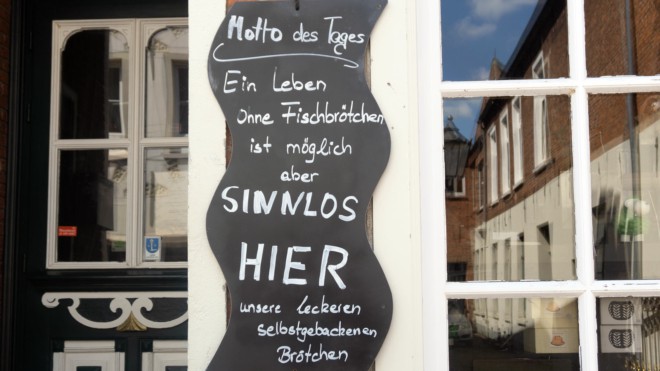 Motto des Tages
Ein Leben
ohne Fischbrötchen
ist möglich
aber
SINNLOS
HIER
unsere leckeren
selbstgebackenen
Brötchen